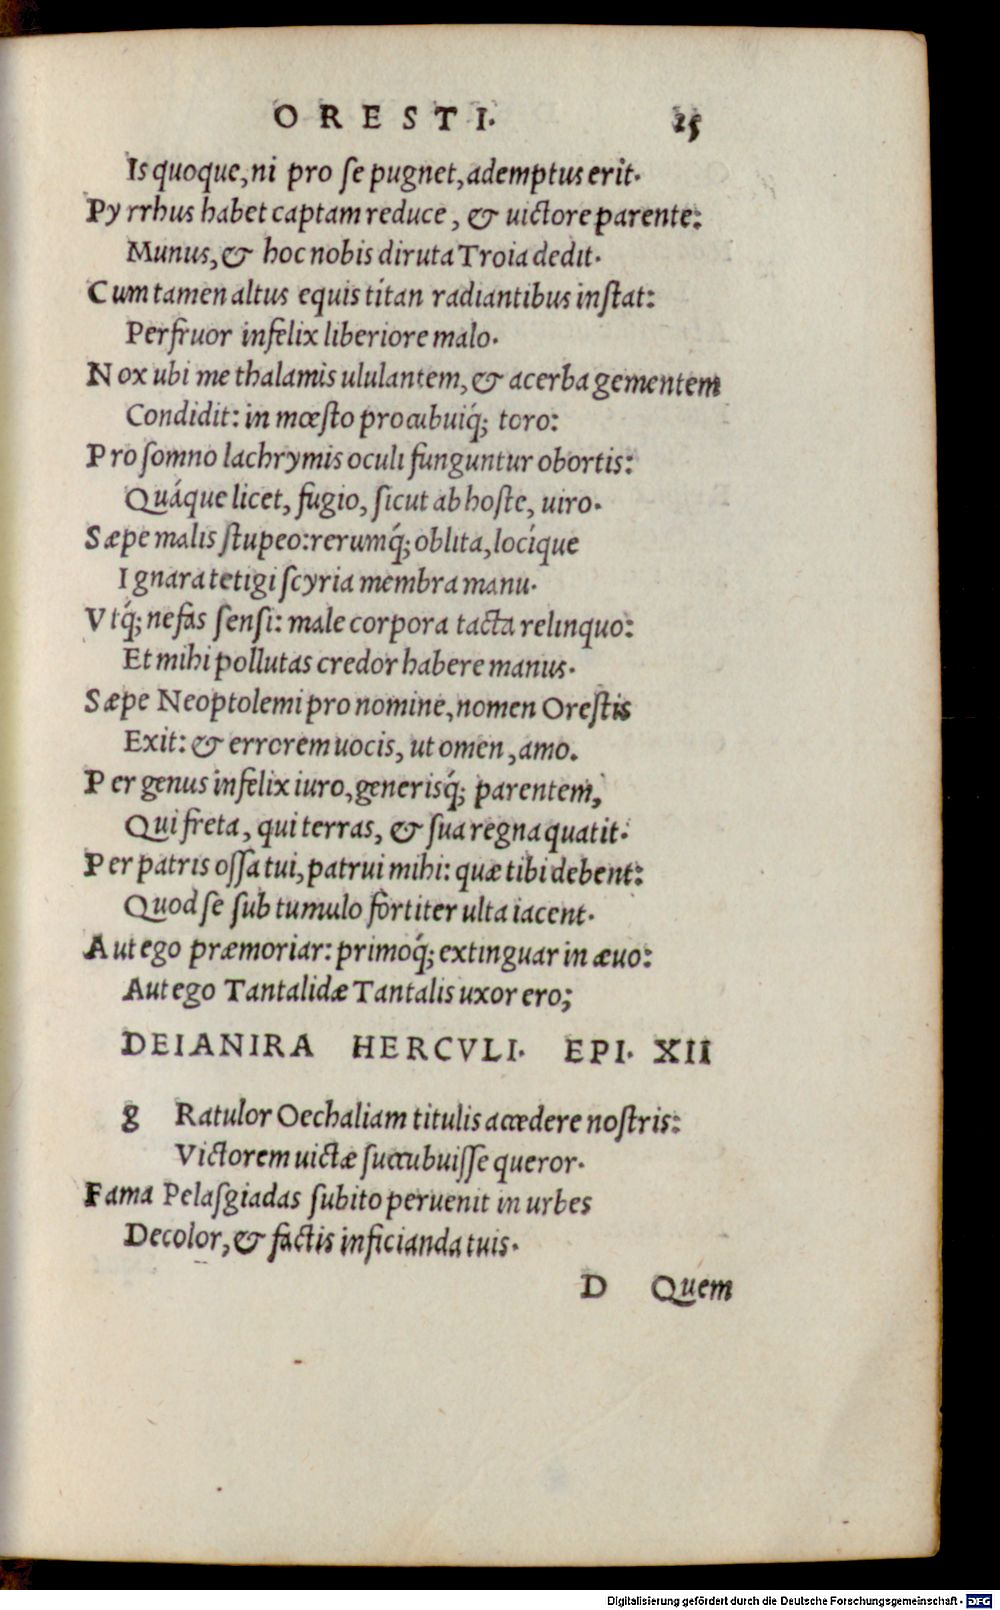 ORESTI. 25
Is quoque, ni pro ſe pugnet, ademptus erit.
Pyrrhus habet captam reduce, & uictore parente:
Munus, & hoc nobis diruta Troia dedit.
Cum tamen altus equis titan radiantibus inſtat:
Perfruor infelix liberiore malo.
Nox ubi me thalamis ululantem, & acerba gementem
Condidit: in mœſto procubuiq́; toro:
Pro ſomno lachrymis oculi funguntur obortis:
Quáque licet, fugio, ſicut ab hoſte, uiro.
Sæpe malis ſtupeo: rerumq́; oblita, locíque
Ignara tetigi ſcyria membra manu.
Vtq́; nefas ſenſi: male corpora tacta relinquo:
Et mihi pollutas credor habere manus.
Sæpe Neoptolemi pro nomine, nomen Oreſtis
Exit: & errorem uocis, ut omen, amo.
Per genus infelix iuro, generisq́; parentem,
Qui freta, qui terras, & ſua regna quatit.
Per patris oſſa tui, patrui mihi: quæ tibi debent:
Quod ſe ſub tumulo fortiter ulta iacent.
Aut ego præmoriar: primoq́; extinguar in æuo:
Aut ego Tantalidæ Tantalis uxor ero;
DEIANIRA HERCVLI. EPI. XII
g Ratulor Oechaliam titulis accedere noſtris:
Victorem uictæ ſuccubuiſſe queror.
Fama Pelaſgiadas ſubito peruenit in urbes
Decolor, & factis inficianda tuis.
D Quem
Digitalisierung gefördert durch die Deutsche Forschungsgemeinschaft - DFG